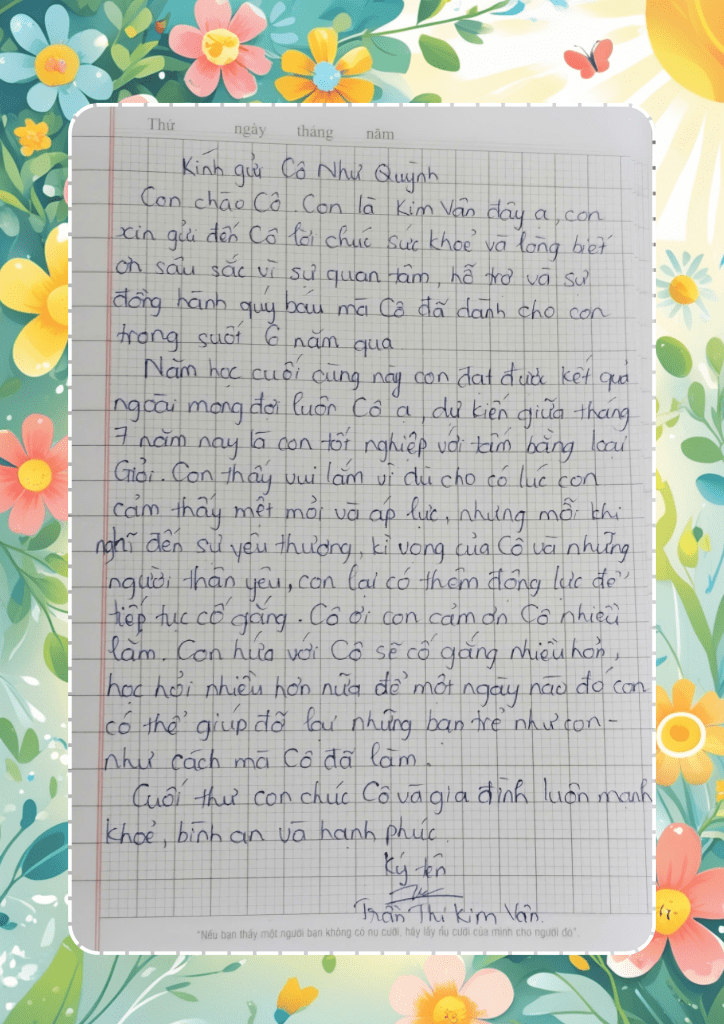 Thứ ngày tháng năm
Kính gửi Cô Như Quỳnh
Con chào Cô. Con là Kim Vân đây ạ, con
xin gửi đến Cô lời chúc sức khoẻ và lòng biết
ơn sâu sắc vì sự quan tâm, hỗ trợ và sự
đồng hành quý báu mà Cô đã dành cho con
trong suốt 6 năm qua
Năm học cuối cùng này con đạt được kết quả
ngoài mong đợi luôn Cô ạ, dự kiến giữa tháng
7 năm nay là con tốt nghiệp với tấm bằng loại
Giỏi. Con thấy vui lắm vì dù cho có lúc con
cảm thấy mệt mỏi và áp lực, nhưng mỗi khi
nghĩ đến sự yêu thương, kì vọng của Cô và những
người thân yêu, con lại có thêm động lực để
tiếp tục cố gắng. Cô ơi con cảm ơn Cô nhiều
lắm. Con hứa với Cô sẽ cố gắng nhiều hơn,
học hỏi nhiều hơn nữa để một ngày nào đó con
có thể giúp đỡ lại những bạn trẻ như con -
như cách mà Cô đã làm.
Cuối thư con chúc Cô và gia đình luôn mạnh
khoẻ, bình an và hạnh phúc.
Ký tên
Trần Thị Kim Vân.
"Nếu bạn thấy một người bạn không có nụ cười, hãy lấy nụ cười của mình cho người đó".